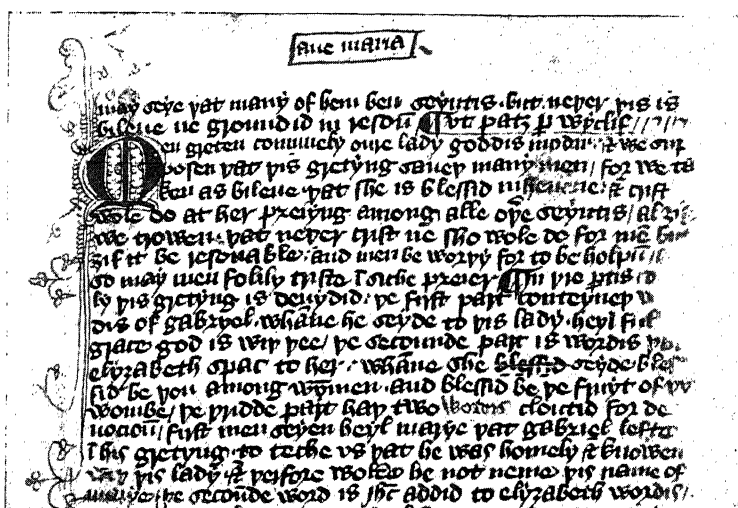 aue maria
may seye þat many of hem ben seyntis · but neþer þis is
bileue ne groundid in resoū ¶ Ut patz p wyclif
en greten comunely oure lady goddis modir · & we sup
posen þat þis gretyng saueþ many men / for we ta
ken as bileue þat she is blessid in heuene · & crist
wole do at her preiyng among alle oþre seyntis / al
we trowen þat neþer crist ne sho wole do for mē
ȝif it be resonable · and men be worþy for to be holpū
so may men folily triste ī siche preier ¶ In þre ptis
ly þis gretyng is deuydid · þe first part conteyneþ
dis of gabryel · whāne he seyde to þis lady · heyl ful
grace god is wiþ þee / þe secounde part is wordis
elyzabeth spac to her · whāne she blessid seyde bles
sid be þou among wȳmen · and blessid be þe fruyt of
wombe / þe þridde part haþ two wordis cloutid for de
uocioū / first men seyen heyl marye þat gabriel lefte
ī his gretyng · to teche vs þat he was homely & knowen
wiþ þis lady · & þerfore wolde he not neme þis name of
marye / þe secoūde word is ihc̄ addid to elyzabeth wordis /